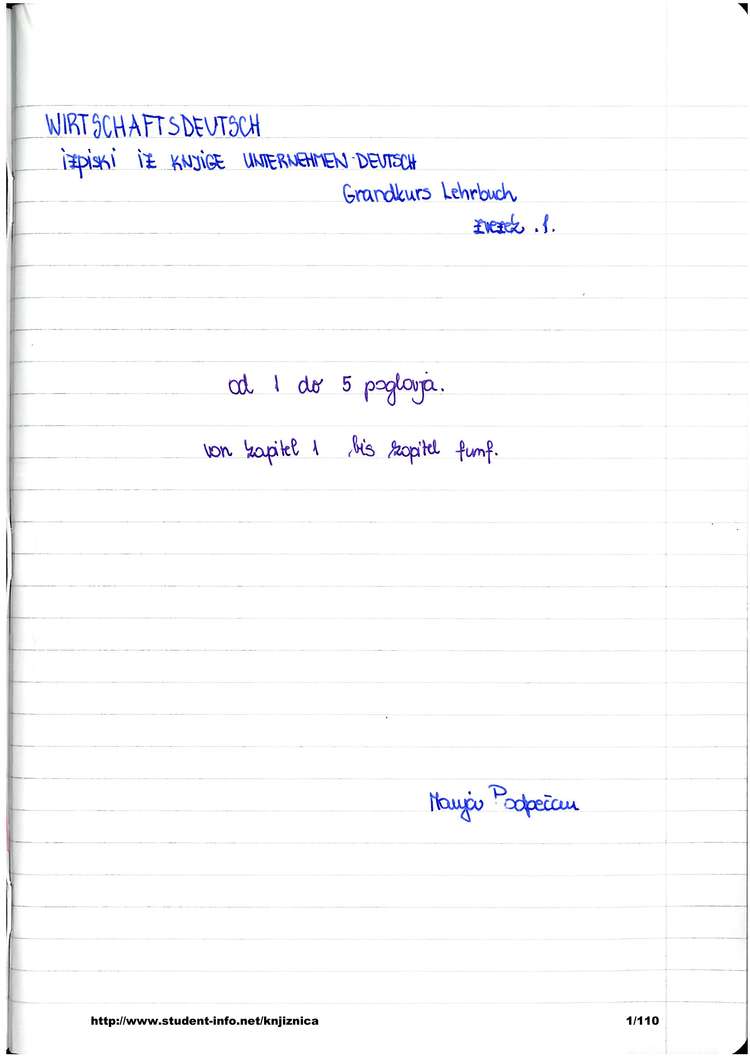 WIRTSCHAFTSDEUTSCH
izpiski iz KNJIGE UNTERNEHMEN DEUTSCH
Grandkurs Lehrbuch
zvezek .1.
od 1 do 5 poglavja.
von kapitel 1 bis kapitel funf.
Podpečan
http://www.student-info.net/knjiznica
1/110